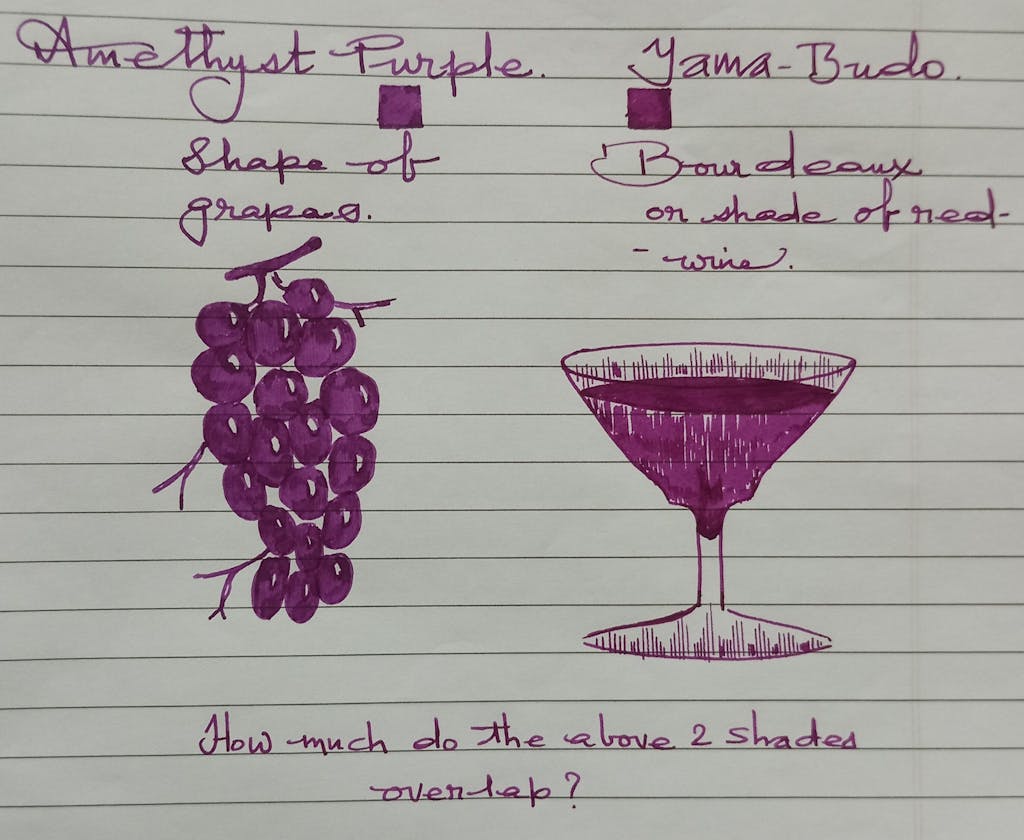 Amethyst Purple. Yama-Budo.
Shape of
grapes.
Bourdeaux
or shade of red-
- wine.
How much do the above 2 shades
overlap?